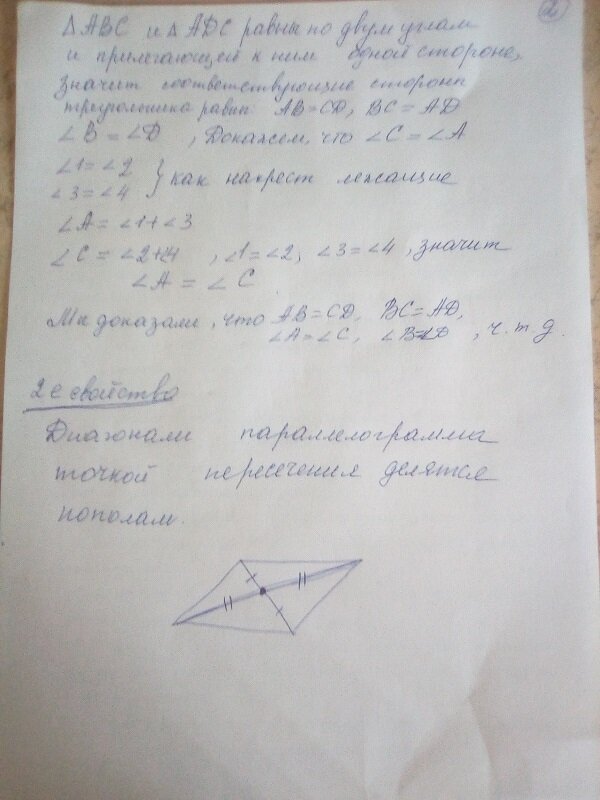 2
△ABC и △ADC равны по двум углам
и прилегающей к ним одной стороне,
Значит соответствующие стороны
треугольника равны: AB=CD, BC=AD
∠B=∠D, Докажем, что ∠C=∠A
∠1=∠2
∠3=∠4 } как накрест лежащие
∠A=∠1+∠3
∠C=∠2+∠4, ∠1=∠2, ∠3=∠4, значит
∠A=∠C
Мы доказали, что AB=CD, BC=AD,
∠A=∠C, ∠B=∠D, ч.т.д.
2е свойство
Диагонали параллелограмма
точкой пересечения делятся
пополам.